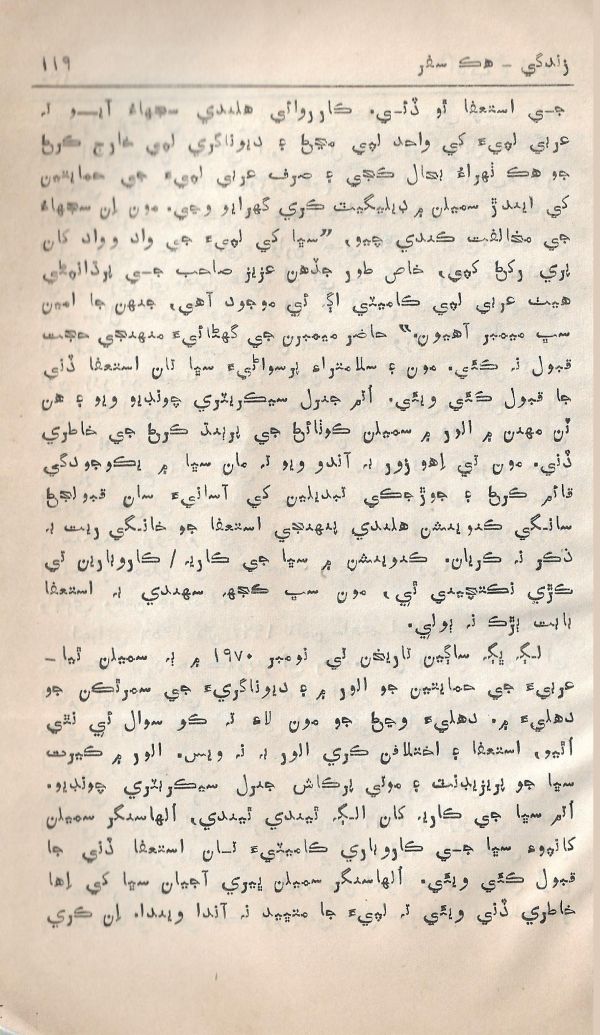 زندگي - هڪ سفر ١١٩
جي استعفا ٿو ڏئي. ڪارروائي هلندي سڃهاءُ آيو ته
عربي لپيءَ کي واحد لپي مڃڻ ۽ ديوناگري لپي خارج ڪرڻ
جو هڪ ٺهراءُ بحال ڪجي ۽ صرف عربي لپيءَ جي حمايتين
کي ايندڙ سميلن ۾ ڊيليگيٽ ڪري گهرايو وڃي. مون اِن سڃهاءَ
جي مخالفت ڪندي چيو، ”سڀا کي لپيءَ جي واد وواد کان
پري رکڻ کپي، خاص طور جڏهن عزيز صاحب جي پرڌانپڻي
هيٺ عربي لپي ڪاميٽي اڳ ئي موجود آهي، جنهن جا اسين
سڀ ميمبر آهيون.“ حاضر ميمبرن جي گهڻائيءَ منهنجي حجت
قبول نه ڪئي. مون ۽ سلامتراءِ پرسواڻيءَ سڀا تان استعفا ڏني
جا قبول ڪئي ويئي. اُتم جنرل سيڪريٽري چونڊيو ويو ۽ هن
ٽن مهنن ۾ الور ۾ سميلن ڪوٺائڻ جي پربنڌ ڪرڻ جي خاطري
ڏني. مون تي اِهو زور به آندو ويو ته مان سڀا ۾ يڪوجودگي
قائم ڪرڻ ۽ جوڙجڪي تبديلين کي آسانيءَ سان قبولڃڻ
سانگي ڪنوينشن هلندي پنهنجي استعفا جو خانگي ريت به
ذڪر نه ڪريان. ڪنوينشن ۾ سڀا جي ڪاريه / ڪاروبارين تي
ڪڙي نڪتچيني ٿي، مون سڀ ڪجهه سهندي به استعفا
بابت ٻڙڪ نه ٻولي.
لڳ ڀڳ ساڳين تاريخن تي نومبر ١٩٧٠ ۾ ٻه سميلن ٿيا-
عربيءَ جي حمايتين جو الور ۾ ۽ ديوناگريءَ جي سمرٿڪن جو
دهليءَ ۾. دهليءَ وڃڻ جو مون لاءِ ته ڪو سوال ئي نٿي
اُٿيو، استعفا ۽ اختلافن ڪري الور به نه ويس. الور ۾ ڪيرت
سڀا جو پريزيڊنٽ ۽ موتي پرڪاش جنرل سيڪريٽري چونڊيو.
اُتم سڀا جي ڪاريه کان الڳ ٿيندي ٿيندي، اُلهاسنگر سميلن
کانپوءِ سڀا جي ڪاروباري ڪاميٽيءَ تان استعفا ڏني جا
قبول ڪئي ويئي. اُلهاسنگر سميلن ڀيري آجيان سڀا کي اِها
خاطري ڏني ويئي ته لپيءَ جا متڀيد نه آندا ويندا. اِن ڪري